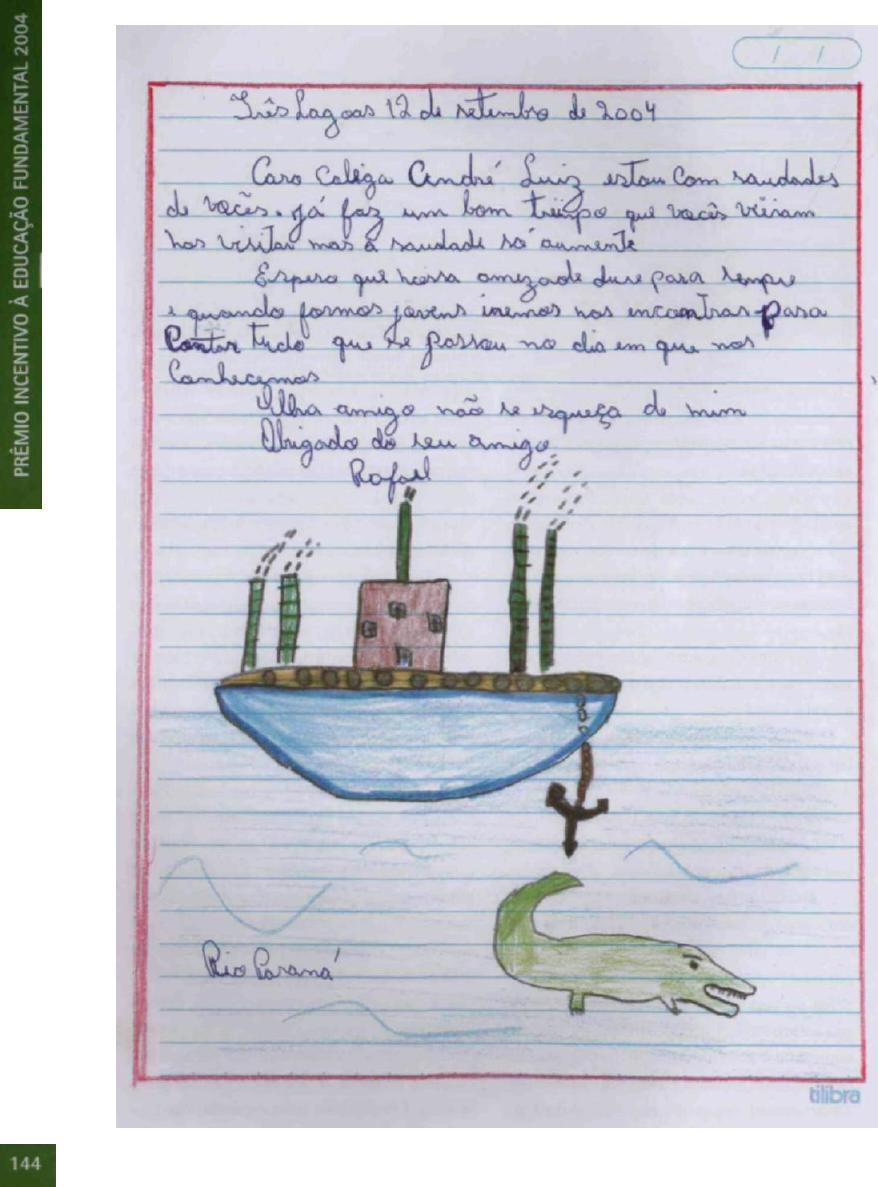 PRÊMIO INCENTIVO À EDUCAÇÃO FUNDAMENTAL 2004
Três Lagoas 12 de setembro de 2004
Caro Coléga André Luiz estou com saudades
de vocês. já faz um bom tempo que vocês vieram
nos visitar mas a saudade só aumente
Espero que nossa amezade dure para sempre
e quando formos jovens iremos nos encontrar para
Contar tudo que se passou no dia em que nos
Conhecemos
Olha amigo não se esqueça de mim
Obrigado do seu amigo
Rafael
Rio Paraná
tilibra
144